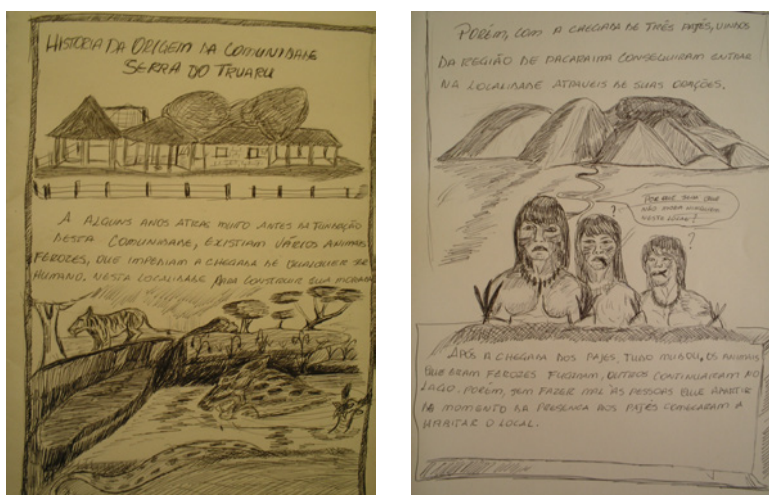 HISTORIA DA ORIGEM DA COMUNIDADE
SERRA DO TRUARU
A ALGUNS ANOS ATRAS MUITO ANTES DA FUNDAÇÃO
DESTA COMUNIDADE, EXISTIAM VÁRIOS ANIMAIS
FEROZES, QUE IMPEDIAM A CHEGADA DE QUALQUER SER
HUMANO. NESTA LOCALIDADE PARA CONSTRUIR SUA MORADA
PORÉM, COM A CHEGADA DE TRÊS PAJÉS, VINDOS
DA REGIÃO DE PACARAIMA CONSEGUIRAM ENTRAR
NA LOCALIDADE ATRAVEIS DE SUAS ORAÇÕES.
POR QUE SERÁ QUE
NÃO MORA NINGUÉM
NESTE LUGAR?
?
?
APÓS A CHEGADA DOS PAJÉS, TUDO MUDOU, OS ANIMAIS
QUE ERAM FEROZES FUGIRAM, OUTROS CONTINUARAM NO
LAGO. PORÉM, SEM FAZER MAL ÀS PESSOAS QUE APARTIR
DE MOMENTO DA PRESENÇA DOS PAJÉS COMEÇARAM A
HABITAR O LOCAL.